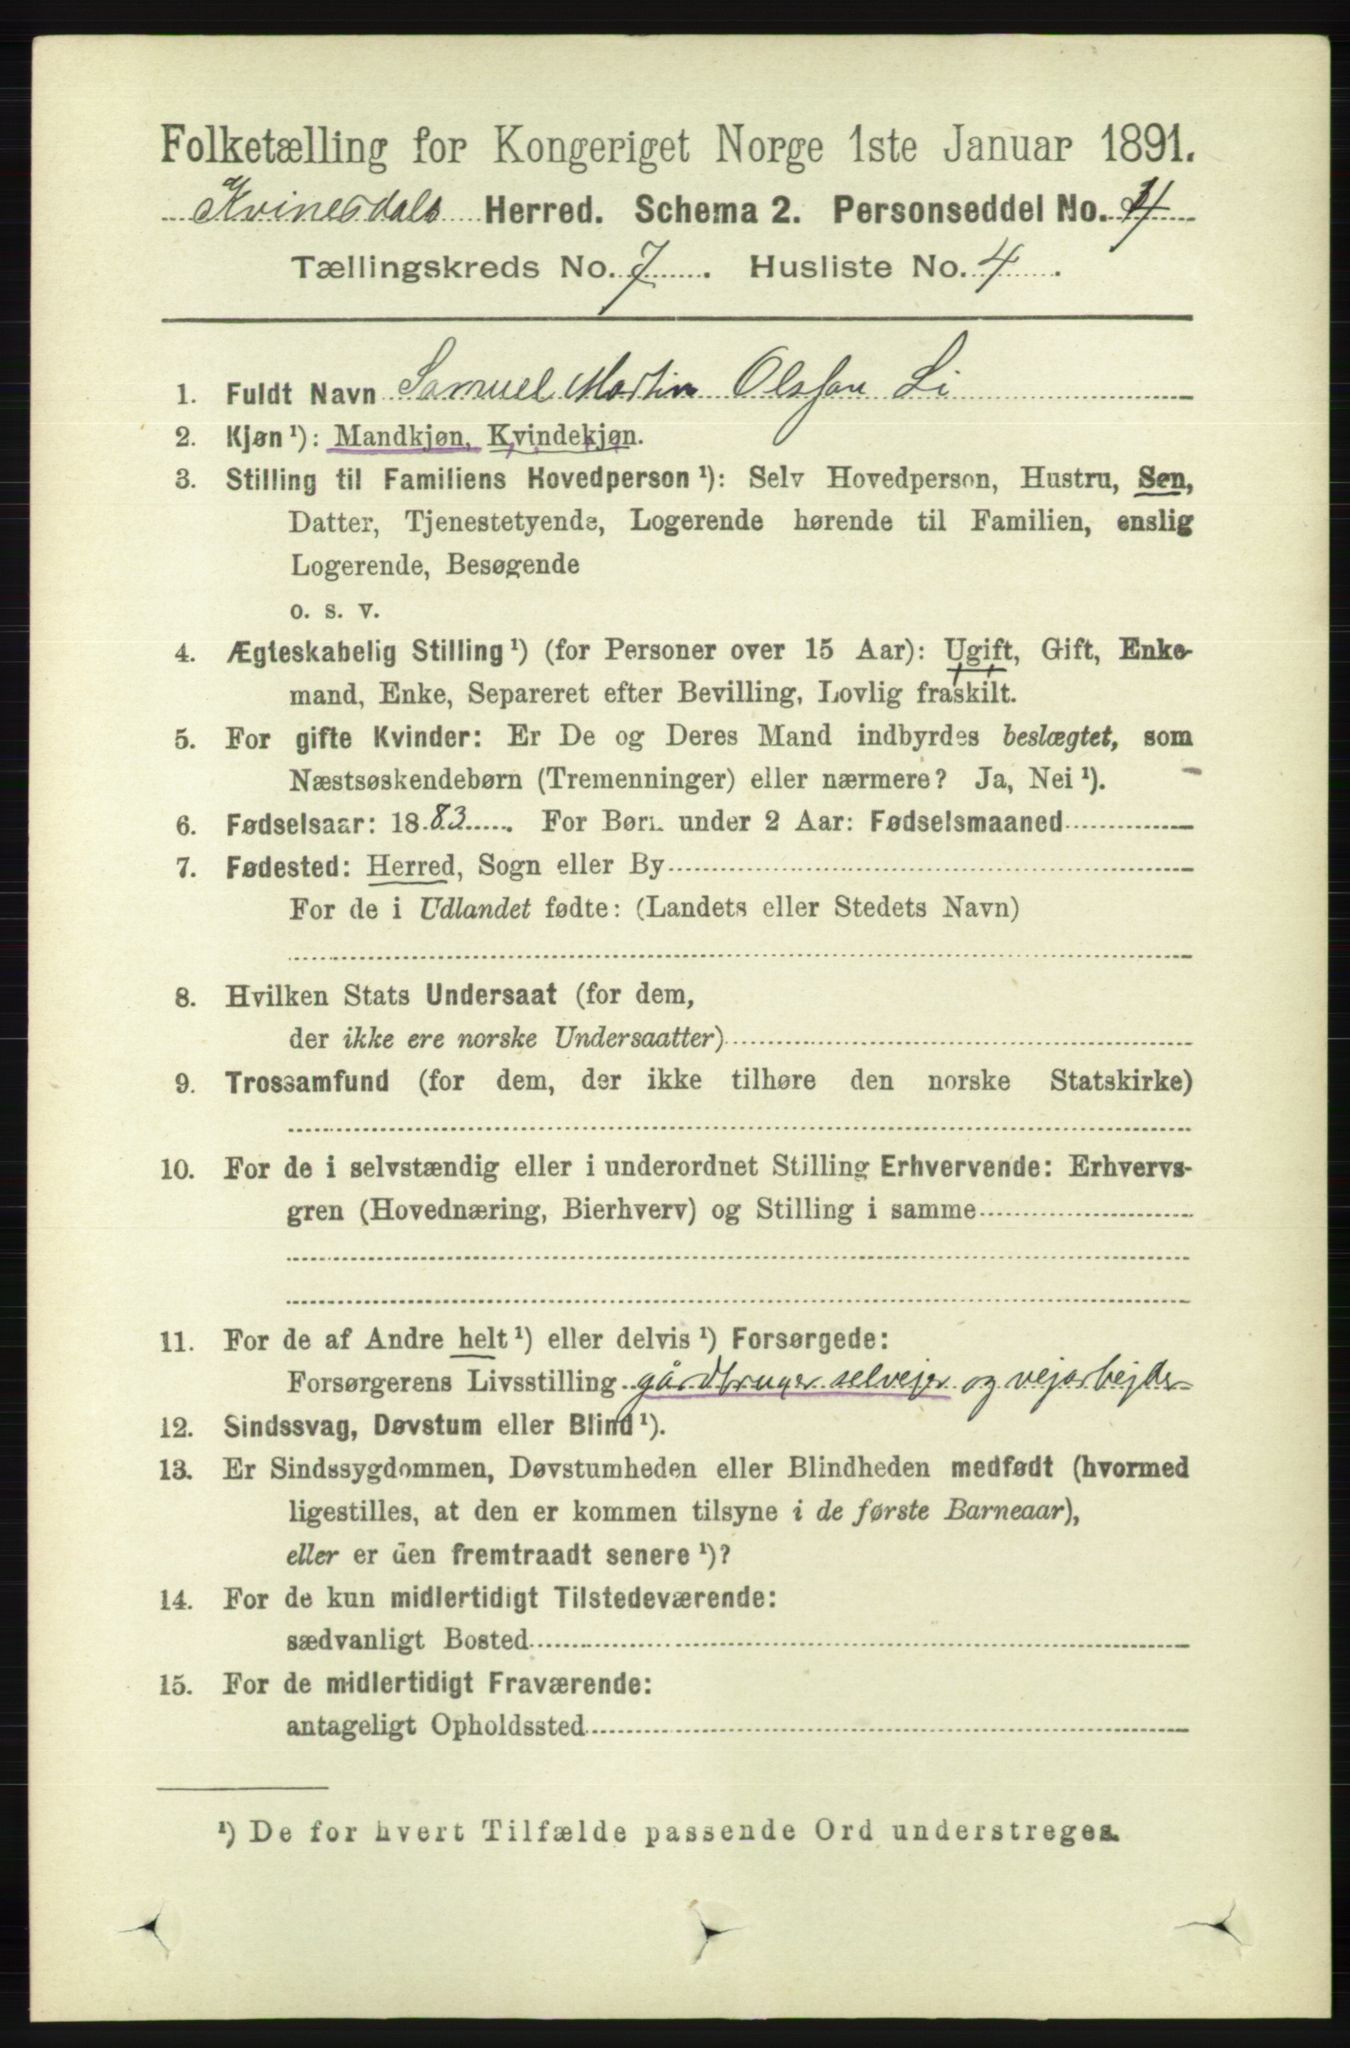 Folketælling for Kongeriget Norge 1ste Januar 1891.
Kvinesdals Herred. Schema 2. Personseddel No. 4
Tællingskreds No. 7. Husliste No. 4.
1. Fuldt Navn Samuel Martin Olsson Li
2. Kjøn¹): Mandkjøn, Kvindekjøn.
3. Stilling til Familiens Hovedperson¹): Selv Hovedperson, Hustru, Søn,
Datter, Tjenestetyende, Logerende hørende til Familien, enslig
Logerende, Besøgende
o. s. v.
4. Ægteskabelig Stilling¹) (for Personer over 15 Aar): Ugift, Gift, Enke-
mand, Enke, Separeret efter Bevilling, Lovlig fraskilt.
5. For gifte Kvinder: Er De og Deres Mand indbyrdes beslægtet, som
Næstsøskendebørn (Tremenninger) eller nærmere? Ja, Nei¹).
6. Fødselsaar: 1883. For Børn under 2 Aar: Fødselsmaaned
7. Fødested: Herred, Sogn eller By
For de i Udlandet fødte: (Landets eller Stedets Navn)
8. Hvilken Stats Undersaat (for dem,
der ikke ere norske Undersaatter)
9. Trossamfund (for dem, der ikke tilhøre den norske Statskirke)
10. For de i selvstændig eller i underordnet Stilling Erhvervende: Erhvervs-
gren (Hovednæring, Bierhverv) og Stilling i samme
11. For de af Andre helt¹) eller delvis¹) Forsørgede:
Forsørgerens Livsstilling gårdbruger selvejer og vejarbejder
12. Sindssvag, Døvstum eller Blind¹).
13. Er Sindssygdommen, Døvstumheden eller Blindheden medfødt (hvormed
ligestilles, at den er kommen tilsyne i de første Barneaar),
eller er den fremtraadt senere¹)?
14. For de kun midlertidigt Tilstedeværende:
sædvanligt Bosted
15. For de midlertidigt Fraværende:
antageligt Opholdssted
¹) De for hvert Tilfælde passende Ord understreges.